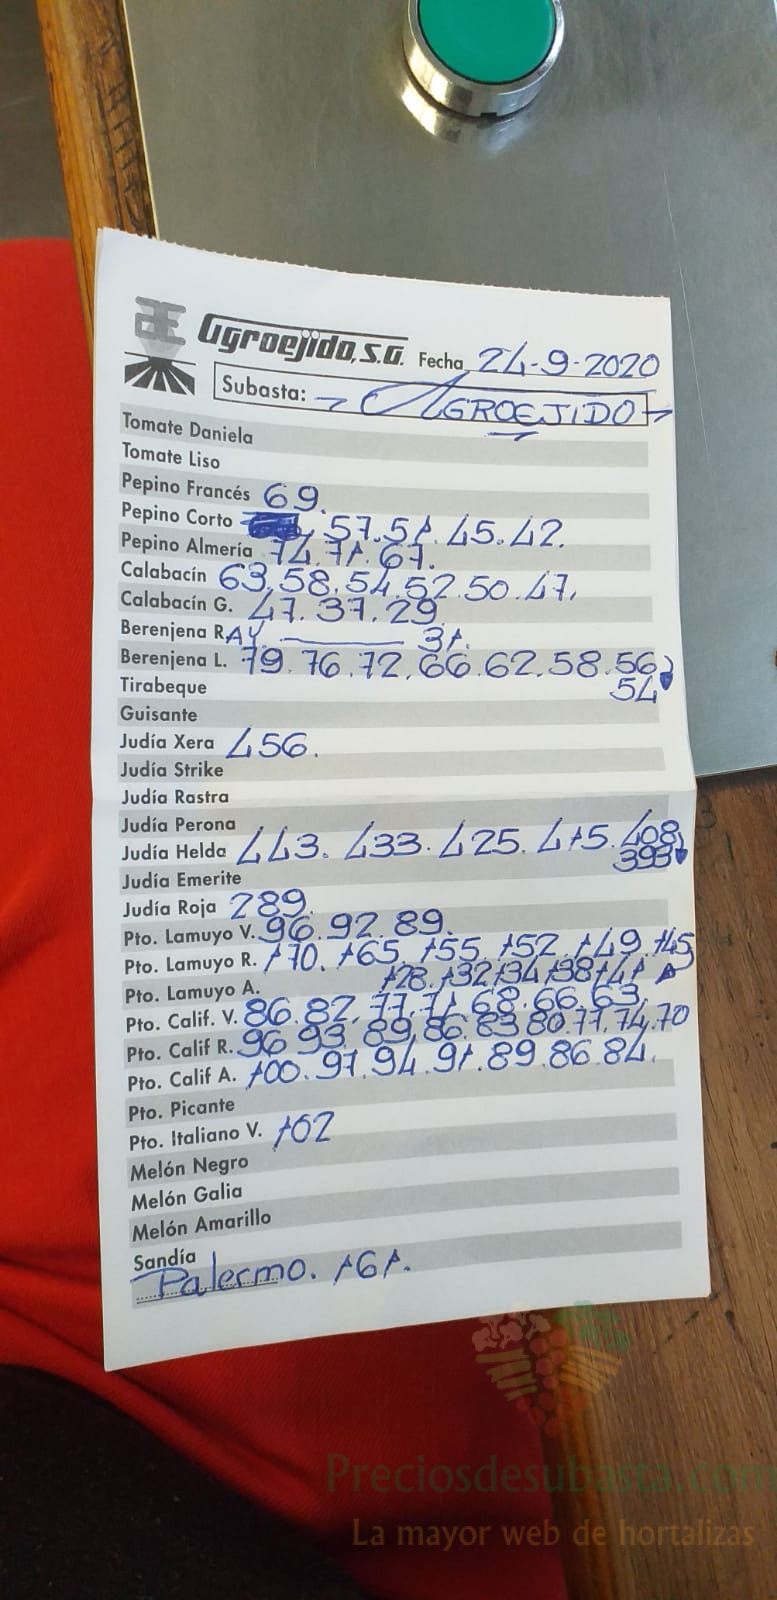 Agroejido, S.A. Fecha 24-9-2020
Subasta: AGROEJIDO
Tomate Daniela
Tomate Liso
Pepino Francés 69.
Pepino Corto 57.51.45.42.
Pepino Almería 74.71.67.
Calabacín 63.58.54.52.50.47.
Calabacín G. 47.37.29
Berenjena RAY. 31.
Berenjena L. 79.76.72.66.62.58.56
Tirabeque 54
Guisante
Judía Xera 456.
Judía Strike
Judía Rastra
Judía Perona
Judía Helda 443.433.425.415.408
393
Judía Emerite
Judía Roja 289
Pto. Lamuyo V. 96.92.89.
Pto. Lamuyo R. 170.165.155.152.149.145
Pto. Lamuyo A. 128.132.134.138.141
Pto. Calif. V. 86.82.77.71.68.66.63
Pto. Calif R. 96.93.89.86.83.80.77.74.70
Pto. Calif A. 100.97.94.91.89.86.84.
Pto. Picante
Pto. Italiano V. 102
Melón Negro
Melón Galia
Melón Amarillo
Sandía
Palermo. 161.
Preciosdesubasta.com
La mayor web de hortalizas